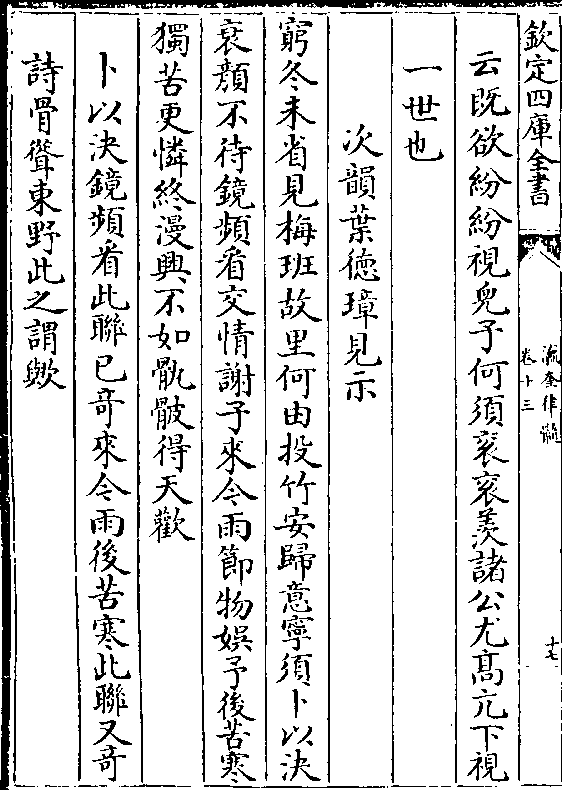 欽定四庫全書
瀛奎律髓
卷十三
十七
云既欲紛紛視兒子何須衮衮羡諸公尤髙亢下視
一世也
次韻葉徳璋見示
窮冬未省見梅班故里何由投竹安歸意寧須卜以決
衰顔不待鏡頻看交情謝子來今雨節物娯予後苦寒
獨苦更憐終漫興不如骩骳得天歡
卜以決鏡頻看此聯已竒來今雨後苦寒此聯又竒
詩骨聳東野此之謂歟